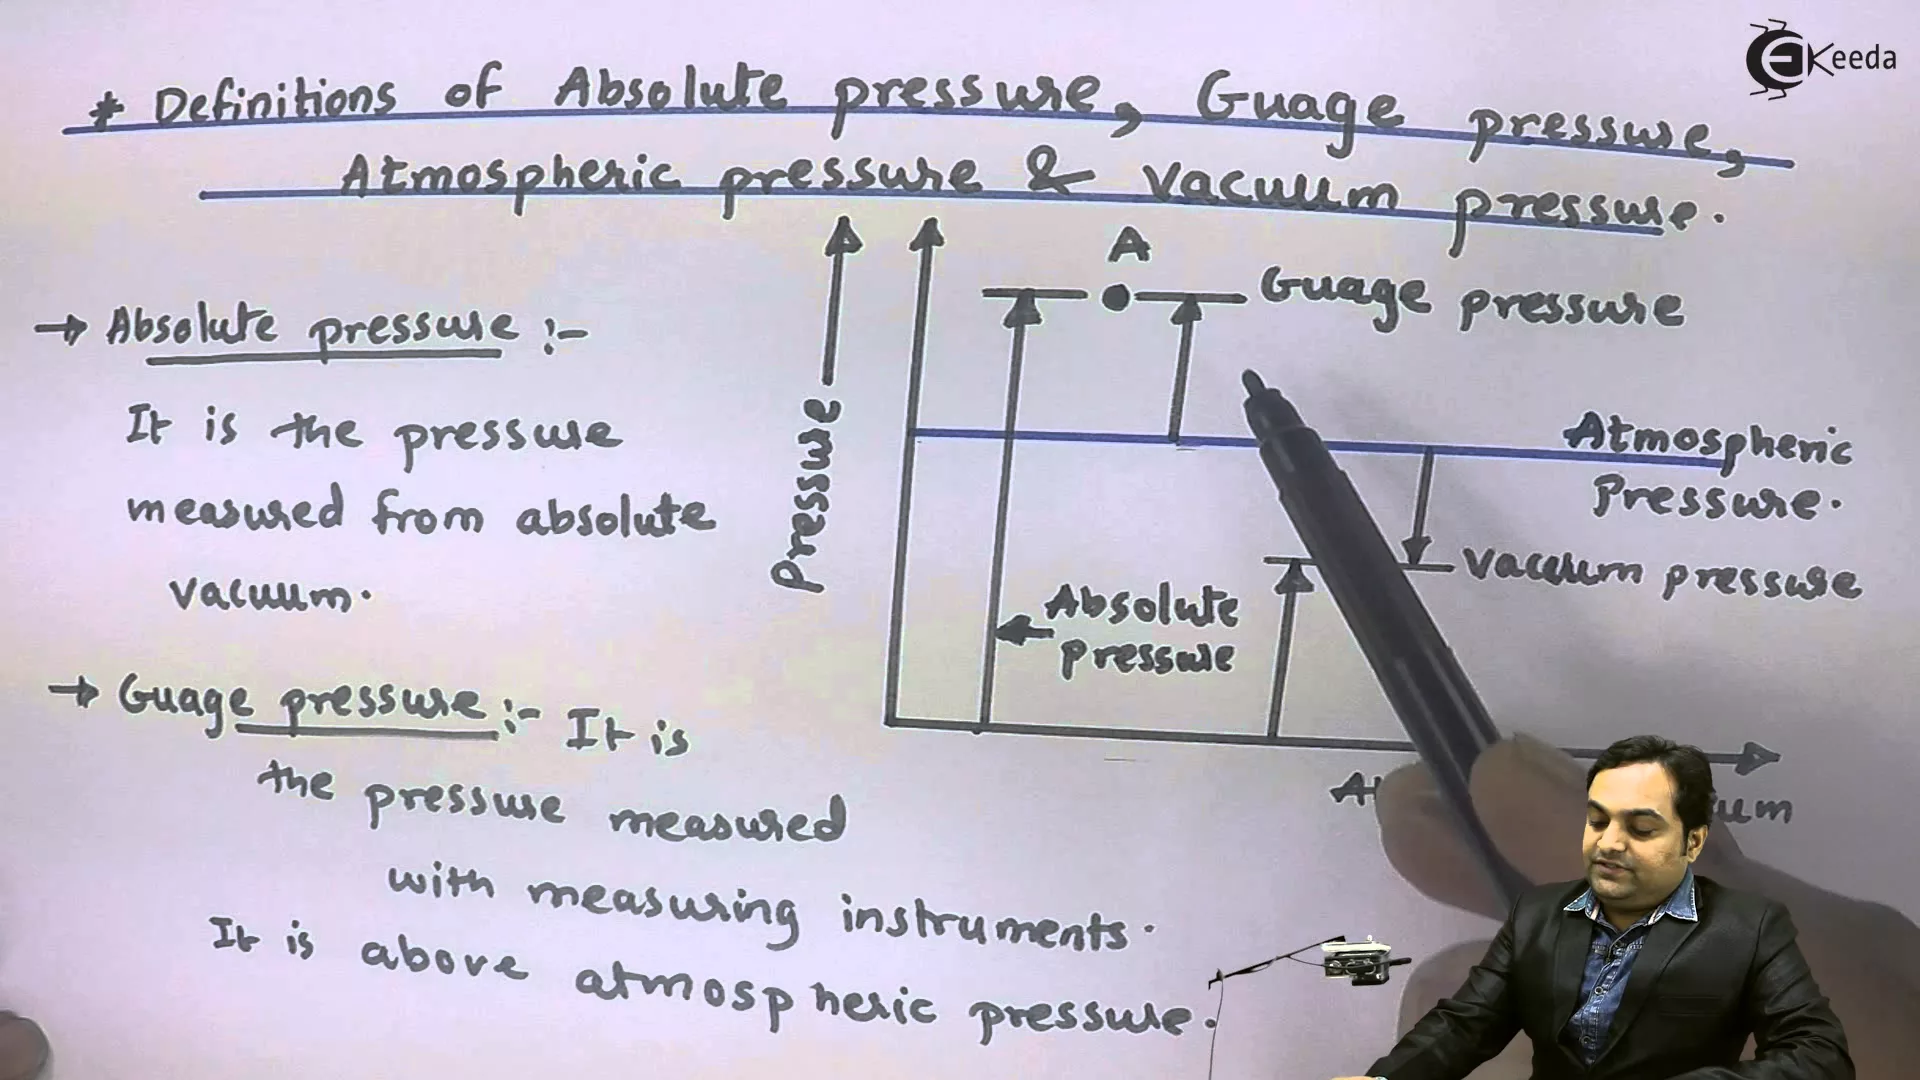 EKeeda
* Definitions of Absolute pressure, Guage pressure,
Atmospheric pressure & Vacuum pressure.
→ Absolute pressure :-
It is the pressure
measured from absolute
vacuum.
→ Guage pressure :- It is
the pressure measured
with measuring instruments.
It is above atmospheric pressure.
Pressure
A
Guage pressure
Atmospheric
Pressure.
Vacuum pressure
Absolute
pressure